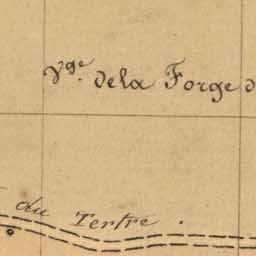 Vge. de la Forge
du Tertre.